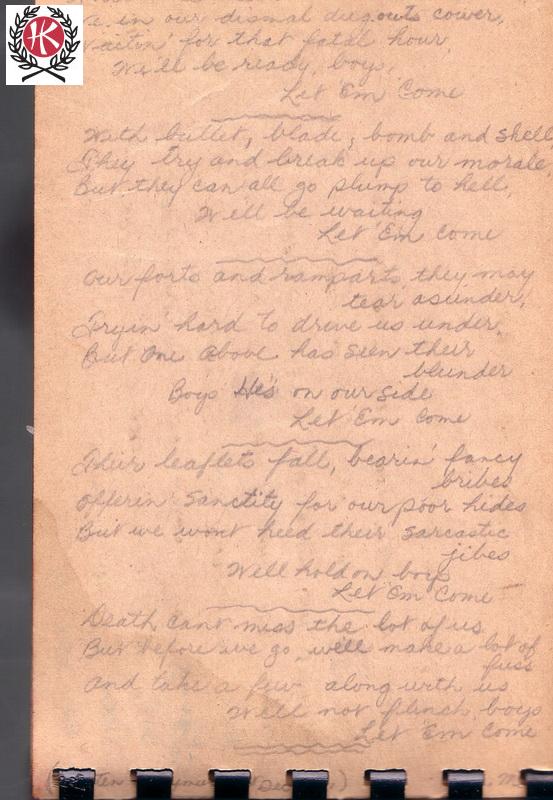 HK
in our dismal dugouts cower,
Waitin' for that fatal hour
We'll be ready, boys,
Let 'Em Come
With bullet, blade, bomb and shell
They try and break up our morale,
But they can all go plump to hell,
We'll be waiting
Let 'Em Come
Our forts and ramparts, they may
tear asunder,
Tryin' hard to drive us under,
But One above has seen their
blunder
Boys He's on our side
Let 'Em Come
Their leaflets fall, bearin' fancy
bribes
Offerin' Sanctity for our poor hides
But we wont heed their sarcastic
jibes
We'll hold on boys
Let 'Em Come
Death can't miss the lot of us
But before we go, we'll make a lot of
fuss
And take a few along with us
We'll not flinch, boys
Let 'Em Come